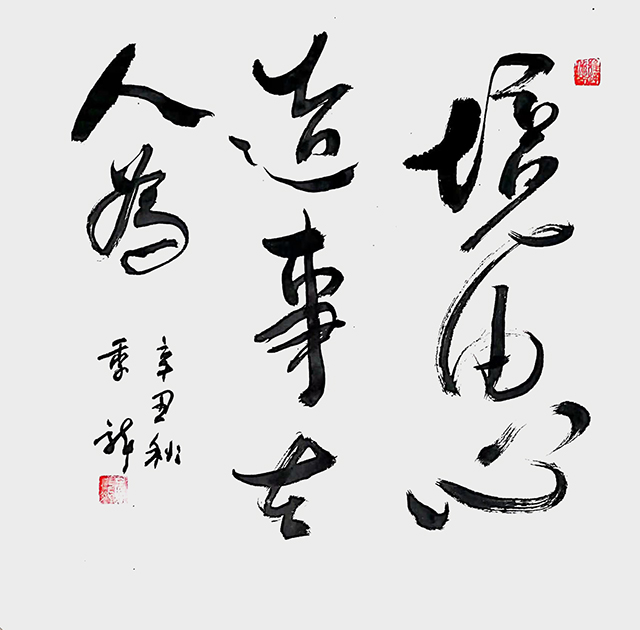 境由心
造事在
人為
辛丑秋
季